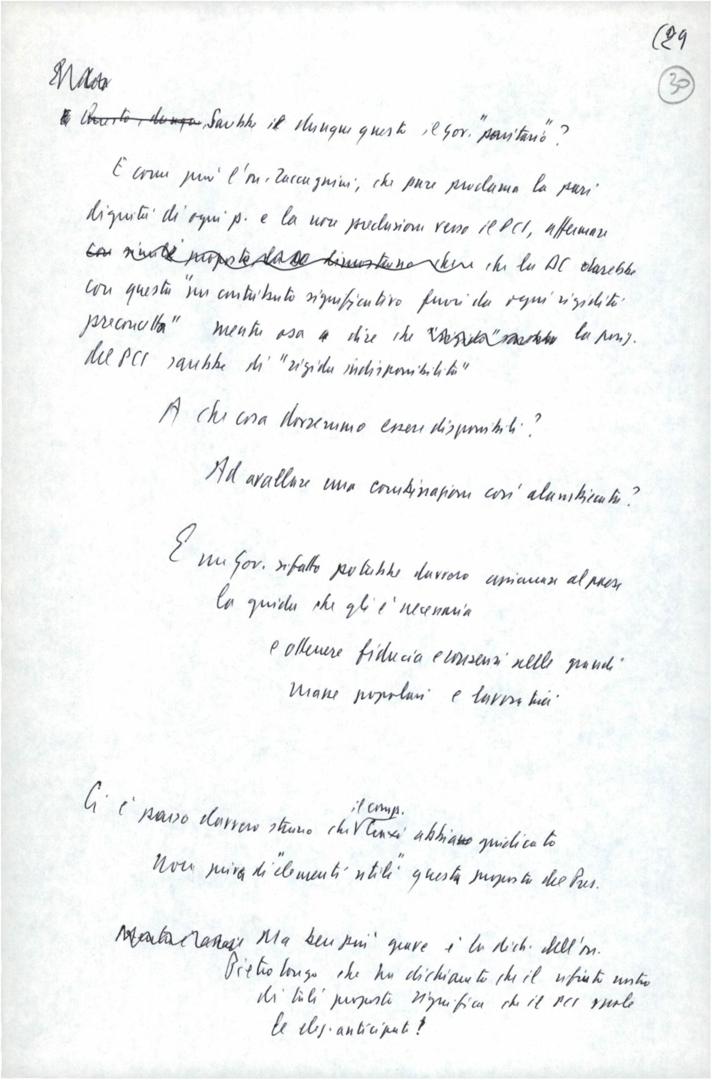 (29
30
Sarebbe il dunque questo il Gov. "paritario"?
E come può l'on. Zaccagnini, che pure proclama la pari
dignità di ogni p. e la non preclusione verso il PCI, affermare
che la DC darebbe
con questa "un contributo significativo fuori da ogni rigidità
preconcetta" mentre osa dire che la pos.
del PCI sarebbe di "rigida indisponibilità"
A che cosa dovremmo essere disponibili?
Ad avallare una combinazione così
E un Gov. siffatto potrebbe davvero assicurare al paese
la guida che gli è necessaria
e ottenere fiducia e consensi nelle grandi
masse popolari e lavoratrici
Ci è parso davvero strano che il comp. abbia giudicato
non priva di "elementi utili" questa proposta del Pres.
Ma ben più grave è la dich. dell'on.
Pietro Longo che ha dichiarato che il rifiuto nostro
di tali proposte significa che il PCI vuole
le elez. anticipate!